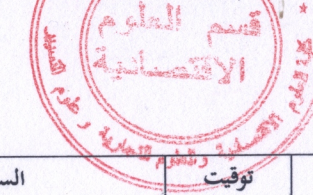 قسم العلوم
الاقتصادية
كلية العلوم الاقتصادية والعلوم التجارية وعلوم التسيير
توقيت